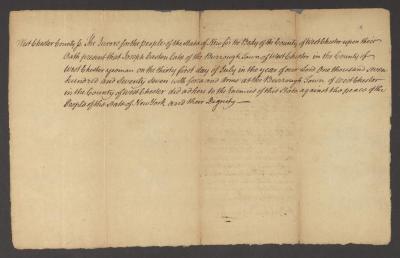 West Chester County ss. The Jurors for the people of the State of New for the Body of the County of West Chester upon their
Oath present that Joseph Purdon Late of the Burrough Town of West Chester in the County of
West Chester yeoman on the thirty first day of July in the year of our Lord One thousand seven
hundred and Seventy Seven with force and Arms at the Burrough Town of West Chester
in the County of West Chester did adhere to the Enemies of this State against the peace of the
People of the State of New York and their Dignity